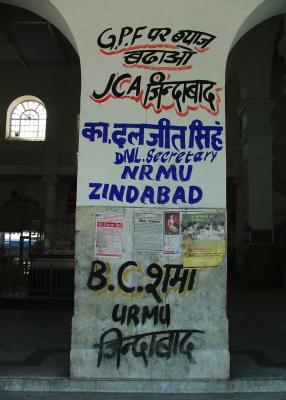 G.P.F पर ब्याज
बढाओ
JCA ज़िन्दाबाद
का. दलजीत सिहं
DIVL. Secretary
NRMU
ZINDABAD
B.C. शर्मा
URMU
ज़िन्दाबाद